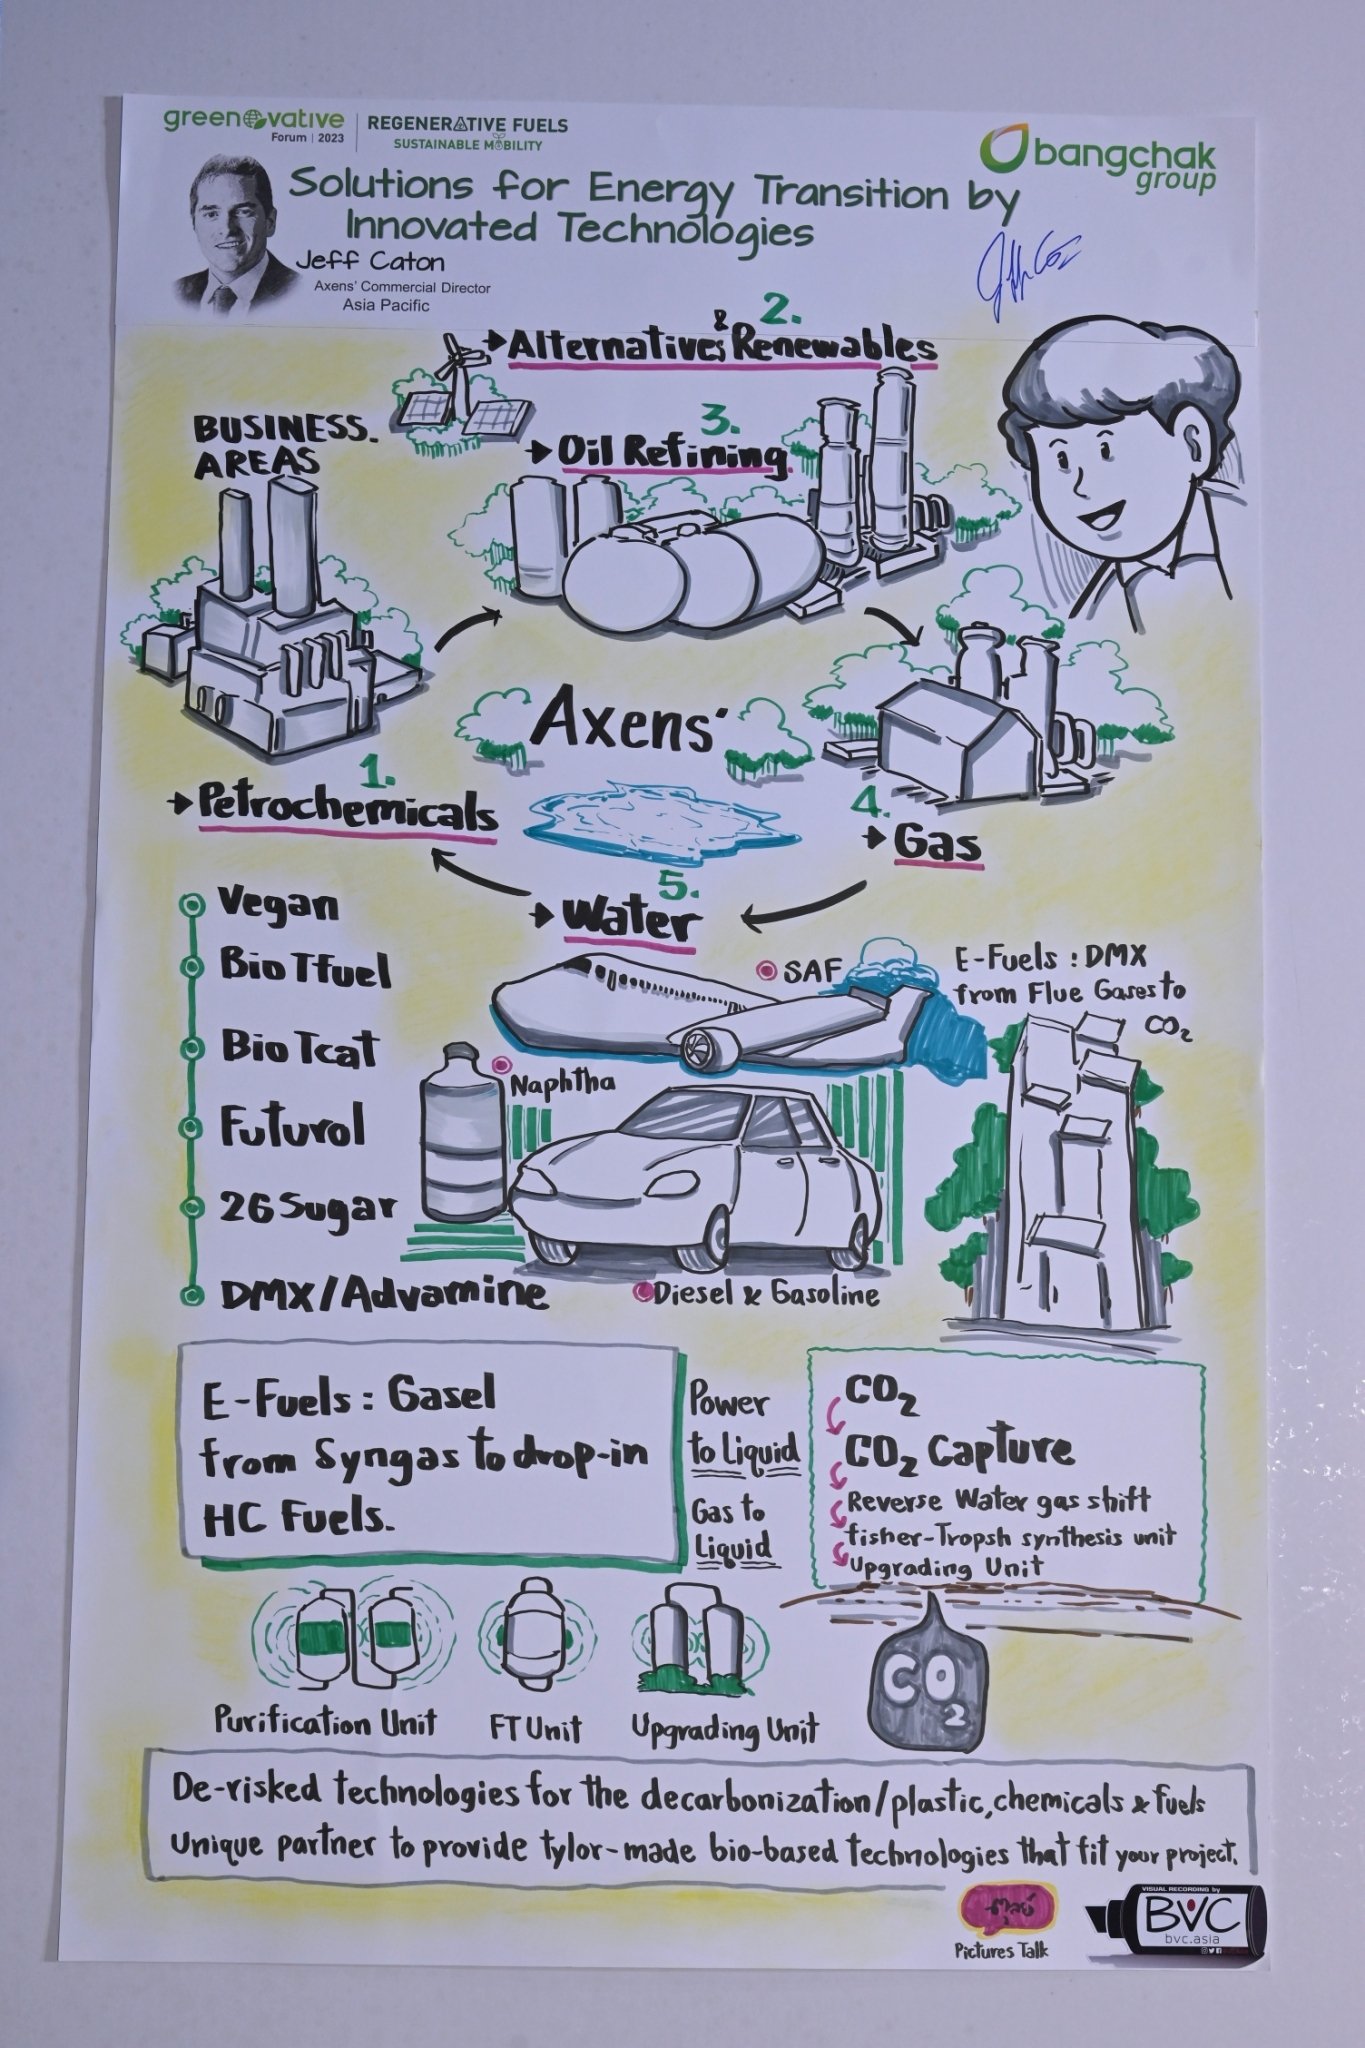 greenovative
Forum | 2023
REGENERATIVE FUELS
SUSTAINABLE MOBILITY
bangchak
group
Solutions for Energy Transition by
Innovated Technologies
Jeff Caton
Axens' Commercial Director
Asia Pacific
2.
Alternatives & Renewables
BUSINESS.
AREAS
3.
Oil Refining
Axens'
1.
Petrochemicals
4.
Gas
5.
Water
Vegan
Bio Tfuel
Bio Tcat
Futurol
2G Sugar
DMX/Advamine
SAF
Naphtha
Diesel & Gasoline
E-Fuels : DMX
from Flue Gases to
CO2
E-Fuels : Gasel
from Syngas to drop-in
HC Fuels.
Power
to Liquid
Gas to
Liquid
CO2
CO2 Capture
Reverse Water gas shift
fisher-Tropsh synthesis unit
Upgrading Unit
Purification Unit
FT Unit
Upgrading Unit
CO2
De-risked technologies for the decarbonization/plastic, chemicals & fuels
Unique partner to provide tylor-made bio-based technologies that fit your project.
Pictures Talk
VISUAL RECORDING by
BVC
bvc.asia